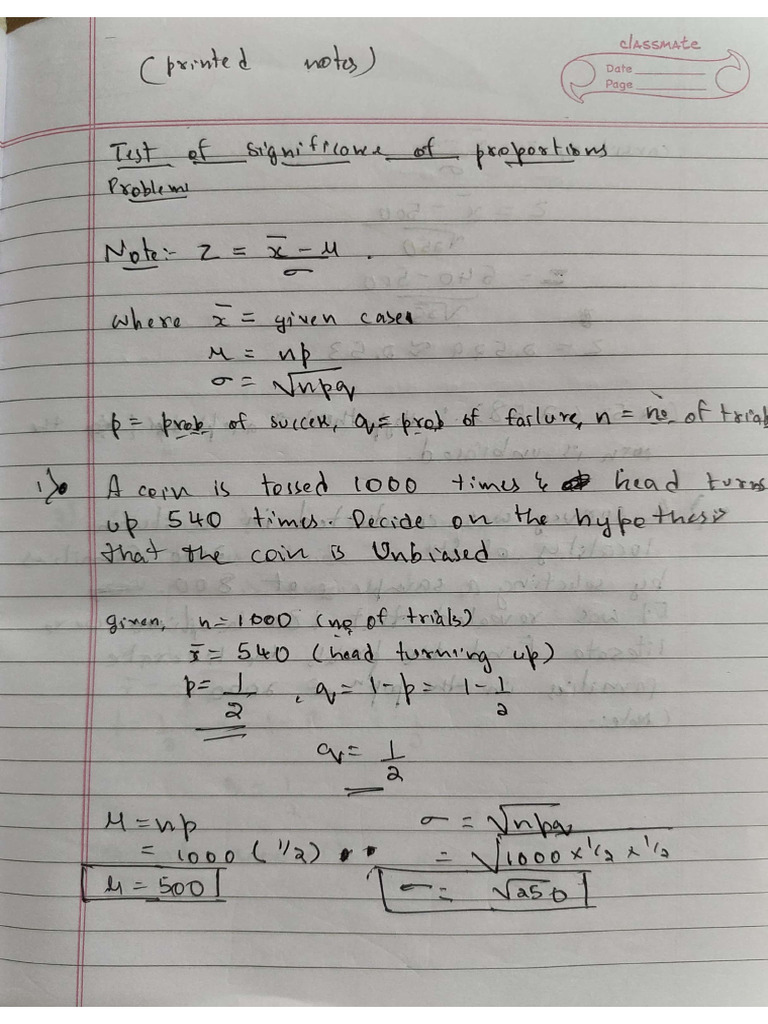 (printed notes)
classmate
Date
Page
Test of significance of proportions
Problems
Note:- Z = x̄ - μ / σ .
where x̄ = given cases
μ = np
σ = √npq
p = prob. of success, q = prob of failure, n = no. of trials
1) A coin is tossed 1000 times & head turns
up 540 times. Decide on the hypothesis
that the coin is Unbiased
given, n = 1000 (no of trials)
x̄ = 540 (head turning up)
p = 1/2 , q = 1 - p = 1 - 1/2
q = 1/2
μ = np σ = √npq
= 1000 (1/2) = √1000 × 1/2 × 1/2
μ = 500 σ = √250